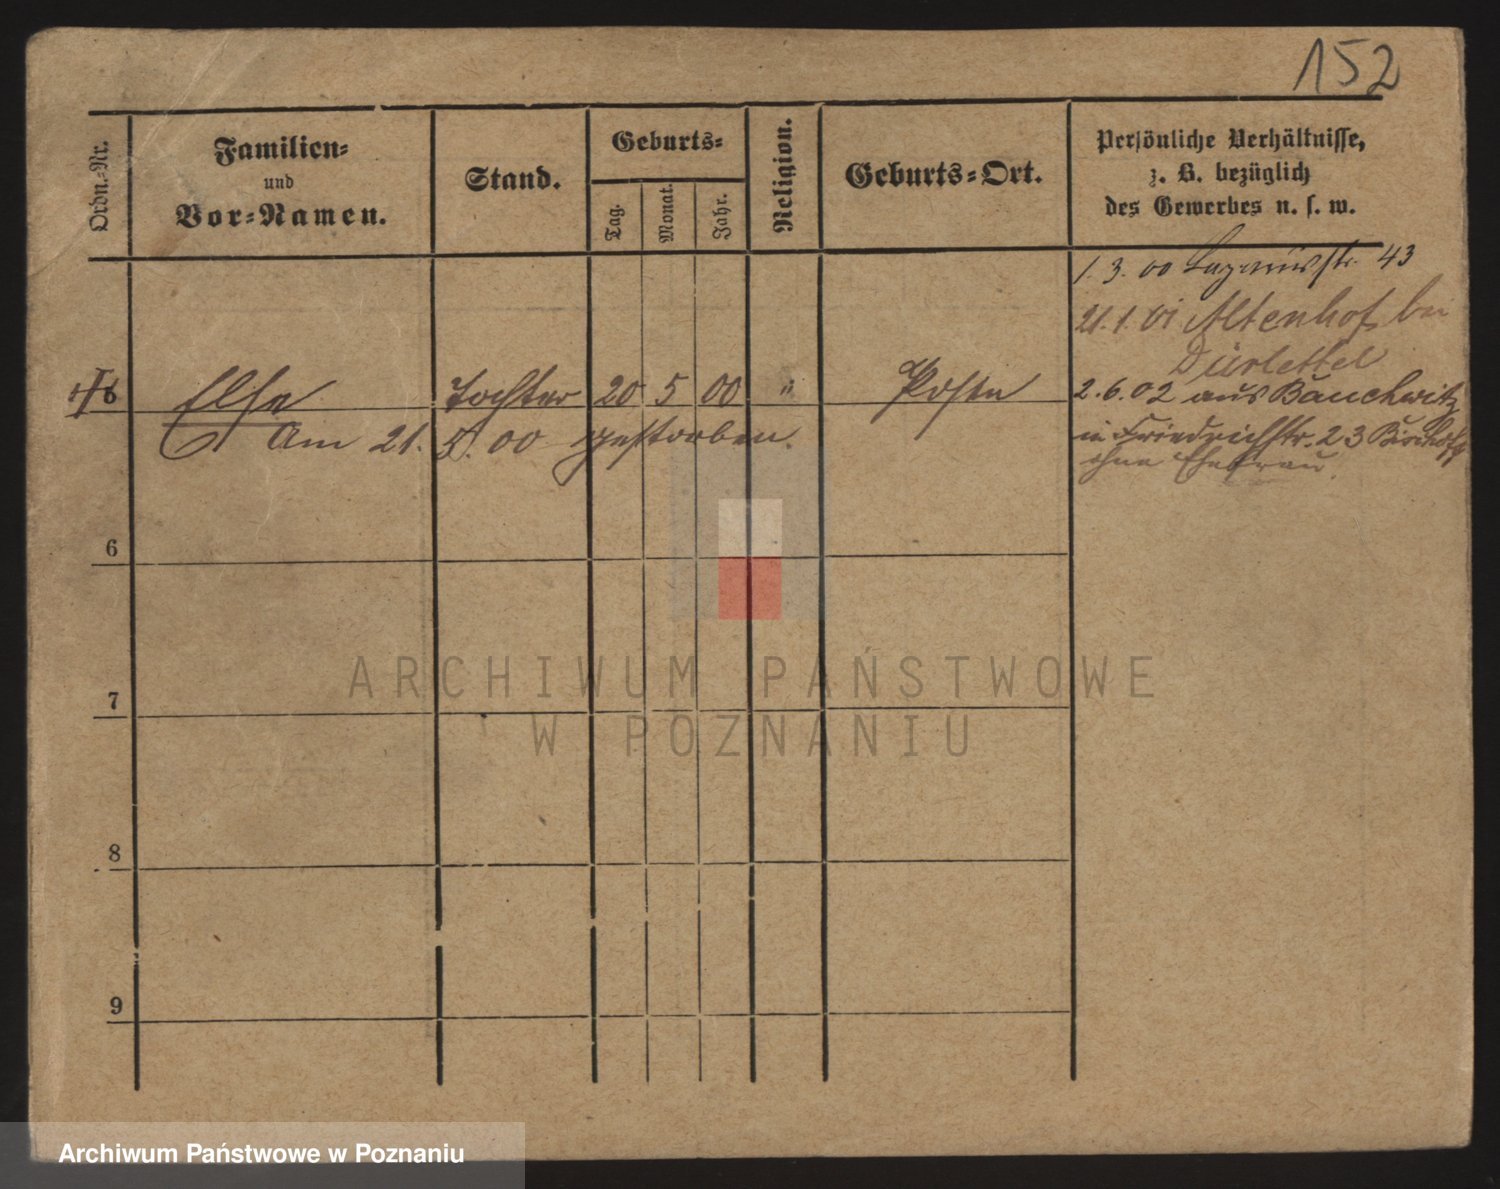 152
Ordn.-Nr.
Familien-
und
Vor-Namen.
Stand.
Geburts-
Tag.
Monat.
Jahr.
Religion.
Geburts-Ort.
Persönliche Verhältnisse,
z. B. bezüglich
des Gewerbes u. s. w.
1. 3. 00 Lazarusstr. 43
21. 1. 01 Altenhof bei
Dürlettel
Else Tochter 20 5 00 " Posen
2. 6. 02 aus Bauchwitz
Am 21. 5. 00 gestorben.
in Friedrichstr. 23
ohne Ehefrau.
6
7
8
9
ARCHIWUM PAŃSTWOWE
W POZNANIU
Archiwum Państwowe w Poznaniu